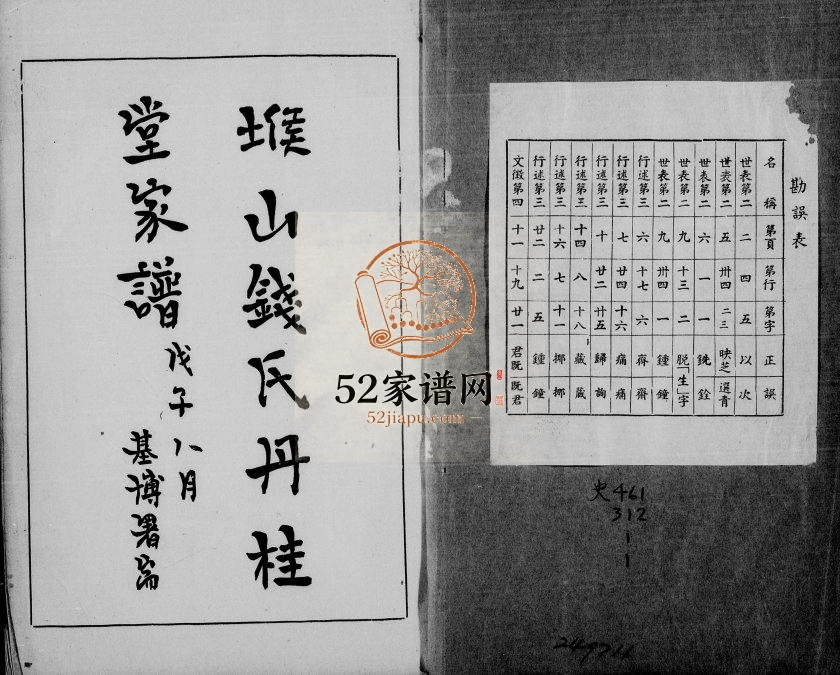 勘誤表
名稱 第頁 第行 第字 正 誤
世表第二 二 四 五 以 次
世表第二 五 卅四 二三 映芝 選青
世表第二 六 一 一 銑 銓
世表第二 九 十三 二 脱「生」字
世表第二 九 卅四 一 鍾 鐘
行述第三 六 十七 六 齊 齋
行述第三 七 廿四 十六 痛 痛
行述第三 十 廿二 廿五 歸 詢
行述第三 十四 八 十八 藏 蔵
行述第三 十六 七 十一 揶 挪
行述第三 廿二 二 五 鍾 鐘
文徵第四 十一 十九 廿一 君既 既君
堠山錢氏丹桂
堂家譜
戊午八月
基博署耑
52家谱网
52jiapu.com
史461
312
1
1